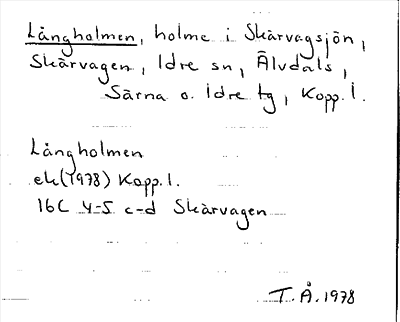 Långholmen, holme i Skärvagsjön,
Skärvagen, Idre sn, Älvdals,
Särna o. Idre tg, Kopp. l.
Långholmen
ek (1978) Kopp. l.
16C 4-5 c-d Skärvagen
T.Å. 1978